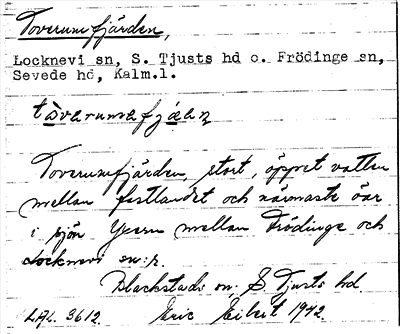 Toverumsfjärden,
Locknevi sn, S. Tjusts hd o. Frödinge sn,
Sevede hd, Kalm.l.
tåverumsfjäen
Toverumsfjärden, stort, öppet vatten
mellan fastlandet och närmaste öar
i sjön Yxern mellan Frödinge och
Locknevi sn:r.
Blackstads sn. S. Tjusts hd.
LAL. 3612. Eric Elieit 1942.